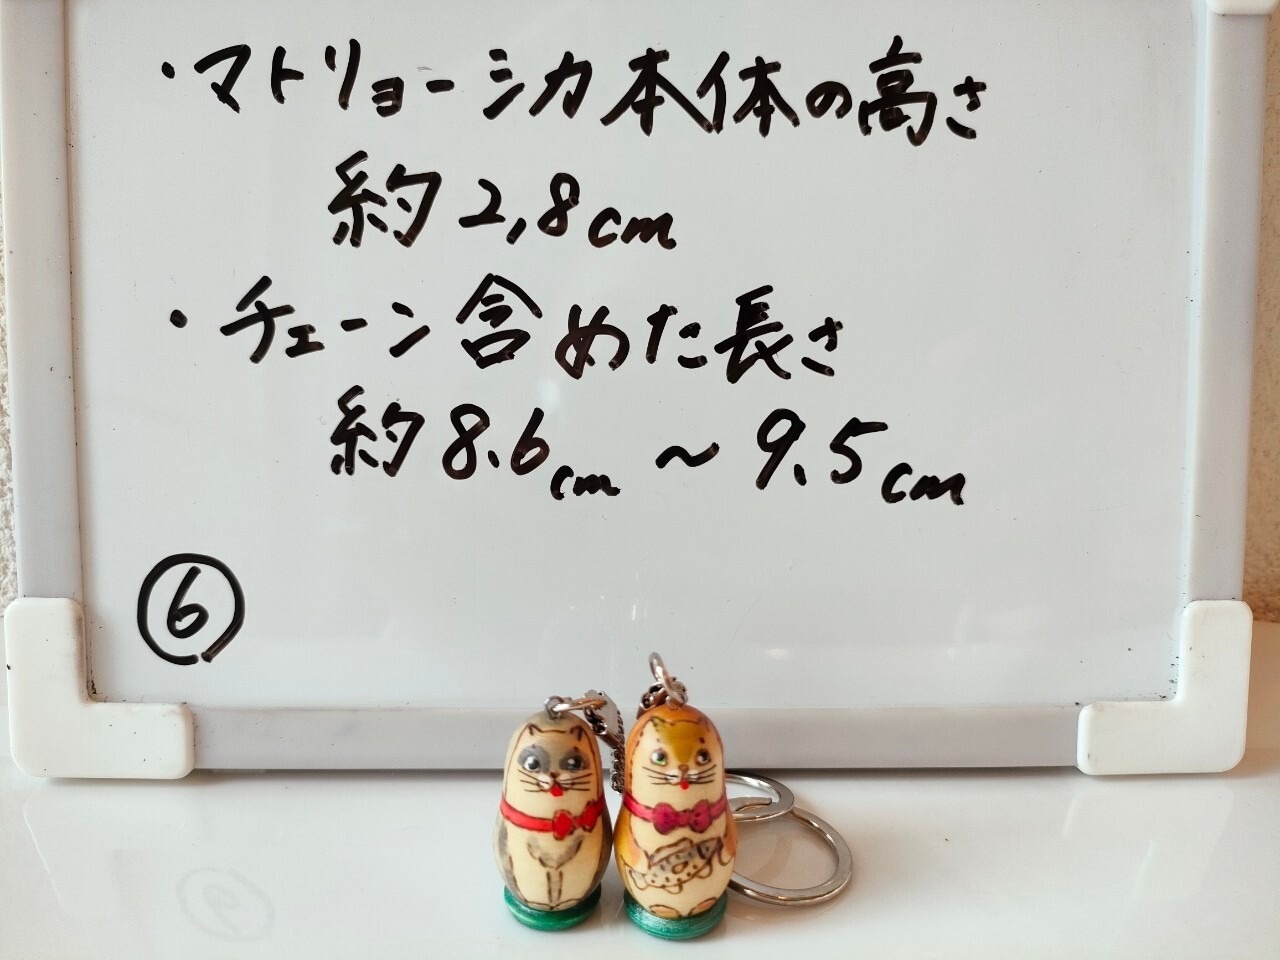 ・マトリョーシカ本体の高さ
約2,8cm
・チェーン含めた長さ
約8.6cm～9.5cm
⑥